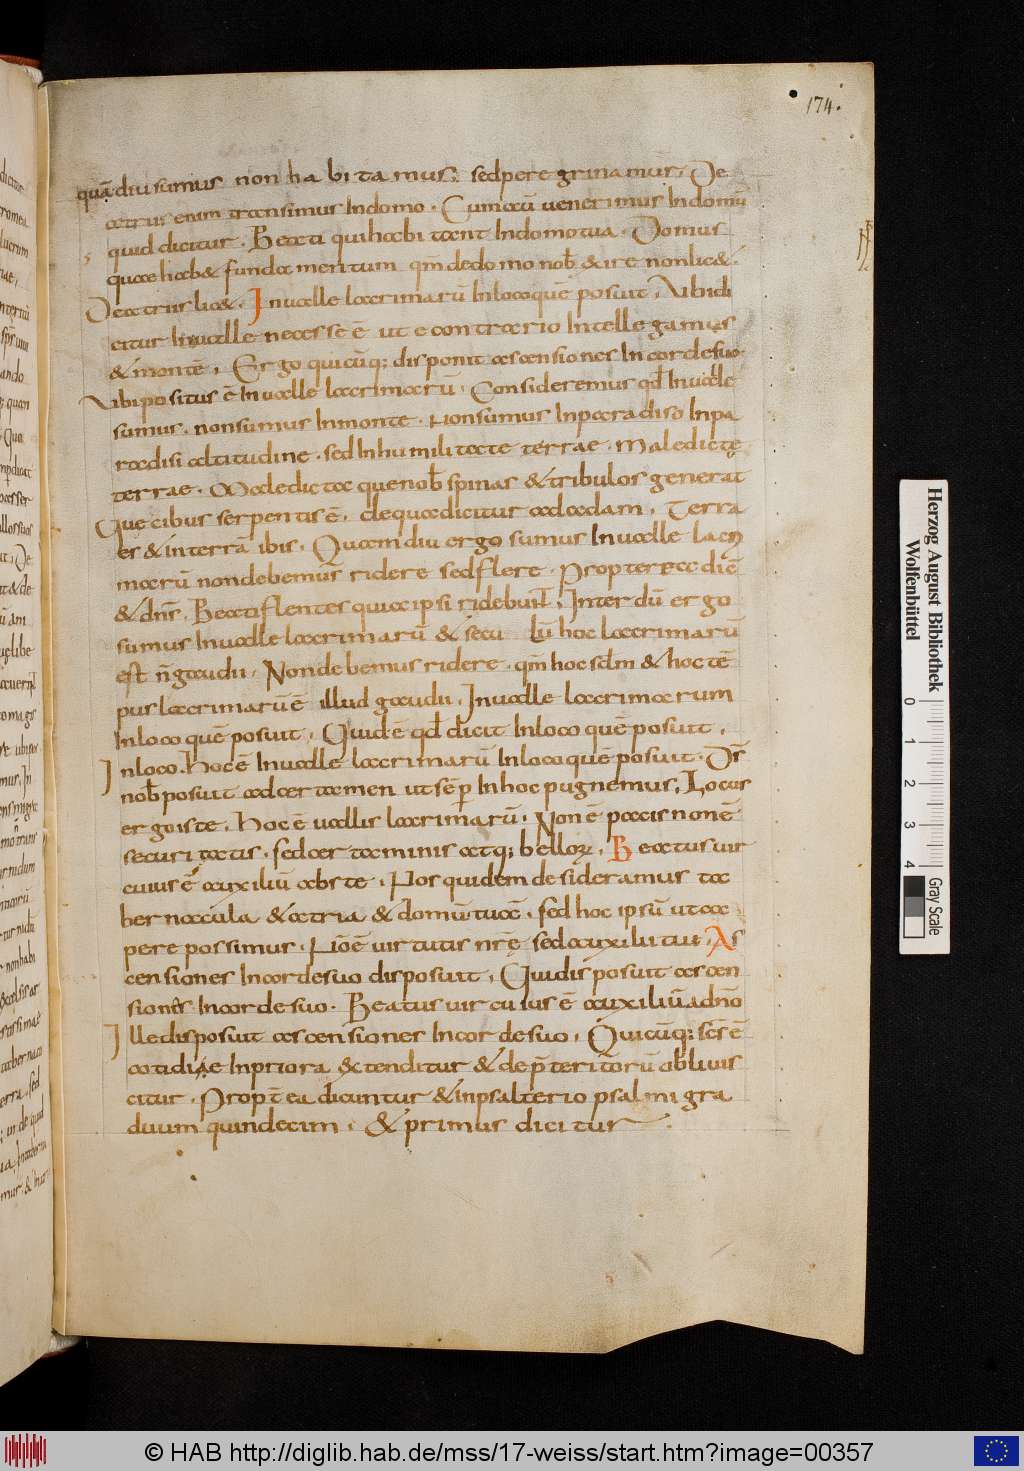 174.
quā diu sumus non habitamus; sed peregrinamur. De
atriis enim transimus In domo. Cum aū uenerimus In domū
quid dicitur. Beati qui habitant In domo tua. Domus
quae hab& fundamentum qm̄ de domo nob̄ exire non lic&.
De atriis lic&. In ualle lacrimarū In loco quē posuit, Vbi di
citur In ualle necesse ē ut e contrario Intellegamus
& montē, Ergo quicūq; disponit ascensiones In corde suo
Vbi positus ē In ualle lacrimarū. Consideremus qd̄ In ualle
sumus. non sumus In monte. Non sumus In paradiso In pa
radisi altitudine. sed In humilitate terrae. Maledictę
terrae. Maledicta que nob̄ spinas & tribulos generat
Quę cibus serpentis ē, de qua dicitur ad adam, Terra
es & in terrā ibis, Quamdiu ergo sumus In ualle lacri
marū non debemus ridere sed flere. Propterea diē
& dn̄s, Beati flentes quia ipsi ridebunt, Interdū ergo
sumus In ualle lacrimarū & secu lū hoc lacrimarū
est n̄ gaudii, Non debemus ridere. qm̄ hoc scl̄m & hoc tē
pus lacrimarū ē illud gaudii, In ualle lacrimarum
In loco quē posuit, Quid ē qd̄ dicit In loco quē posuit,
In loco. Hoc ē In ualle lacrimarū In loco quē posuit. Ds̄
nob̄ posuit ad certamen ut sēp In hoc pugnemus, Locus
ergo iste, Hoc ē uallis lacrimarū, Non ē pacis non ē
securitatis, sed certaminis atq; bellorum, Beatus uir
cuius ē auxiliū abs te, Nos quidem desideramus ta
bernacula & atria & domū tuā, sed hoc ipsū ut acci
pere possimus, Nō ē uirtutis nr̄ę sed auxilii tui, As
censiones In corde suo disposuit, Qui disposuit ascen
siones In corde suo. Beatus uir cuius ē auxiliū a dn̄o
Ille disposuit ascensiones In corde suo, Quicūq; scs̄ ē
cotidie In priora extenditur & de p̄teritorū obliuis
citur, Propt̄ea dicuntur & in psalterio psalmi gra
duum quindecim, & primus dicitur.
Herzog August Bibliothek
Wolfenbüttel
0 1 2 3 4
Gray Scale
© HAB http://diglib.hab.de/mss/17-weiss/start.htm?image=00357